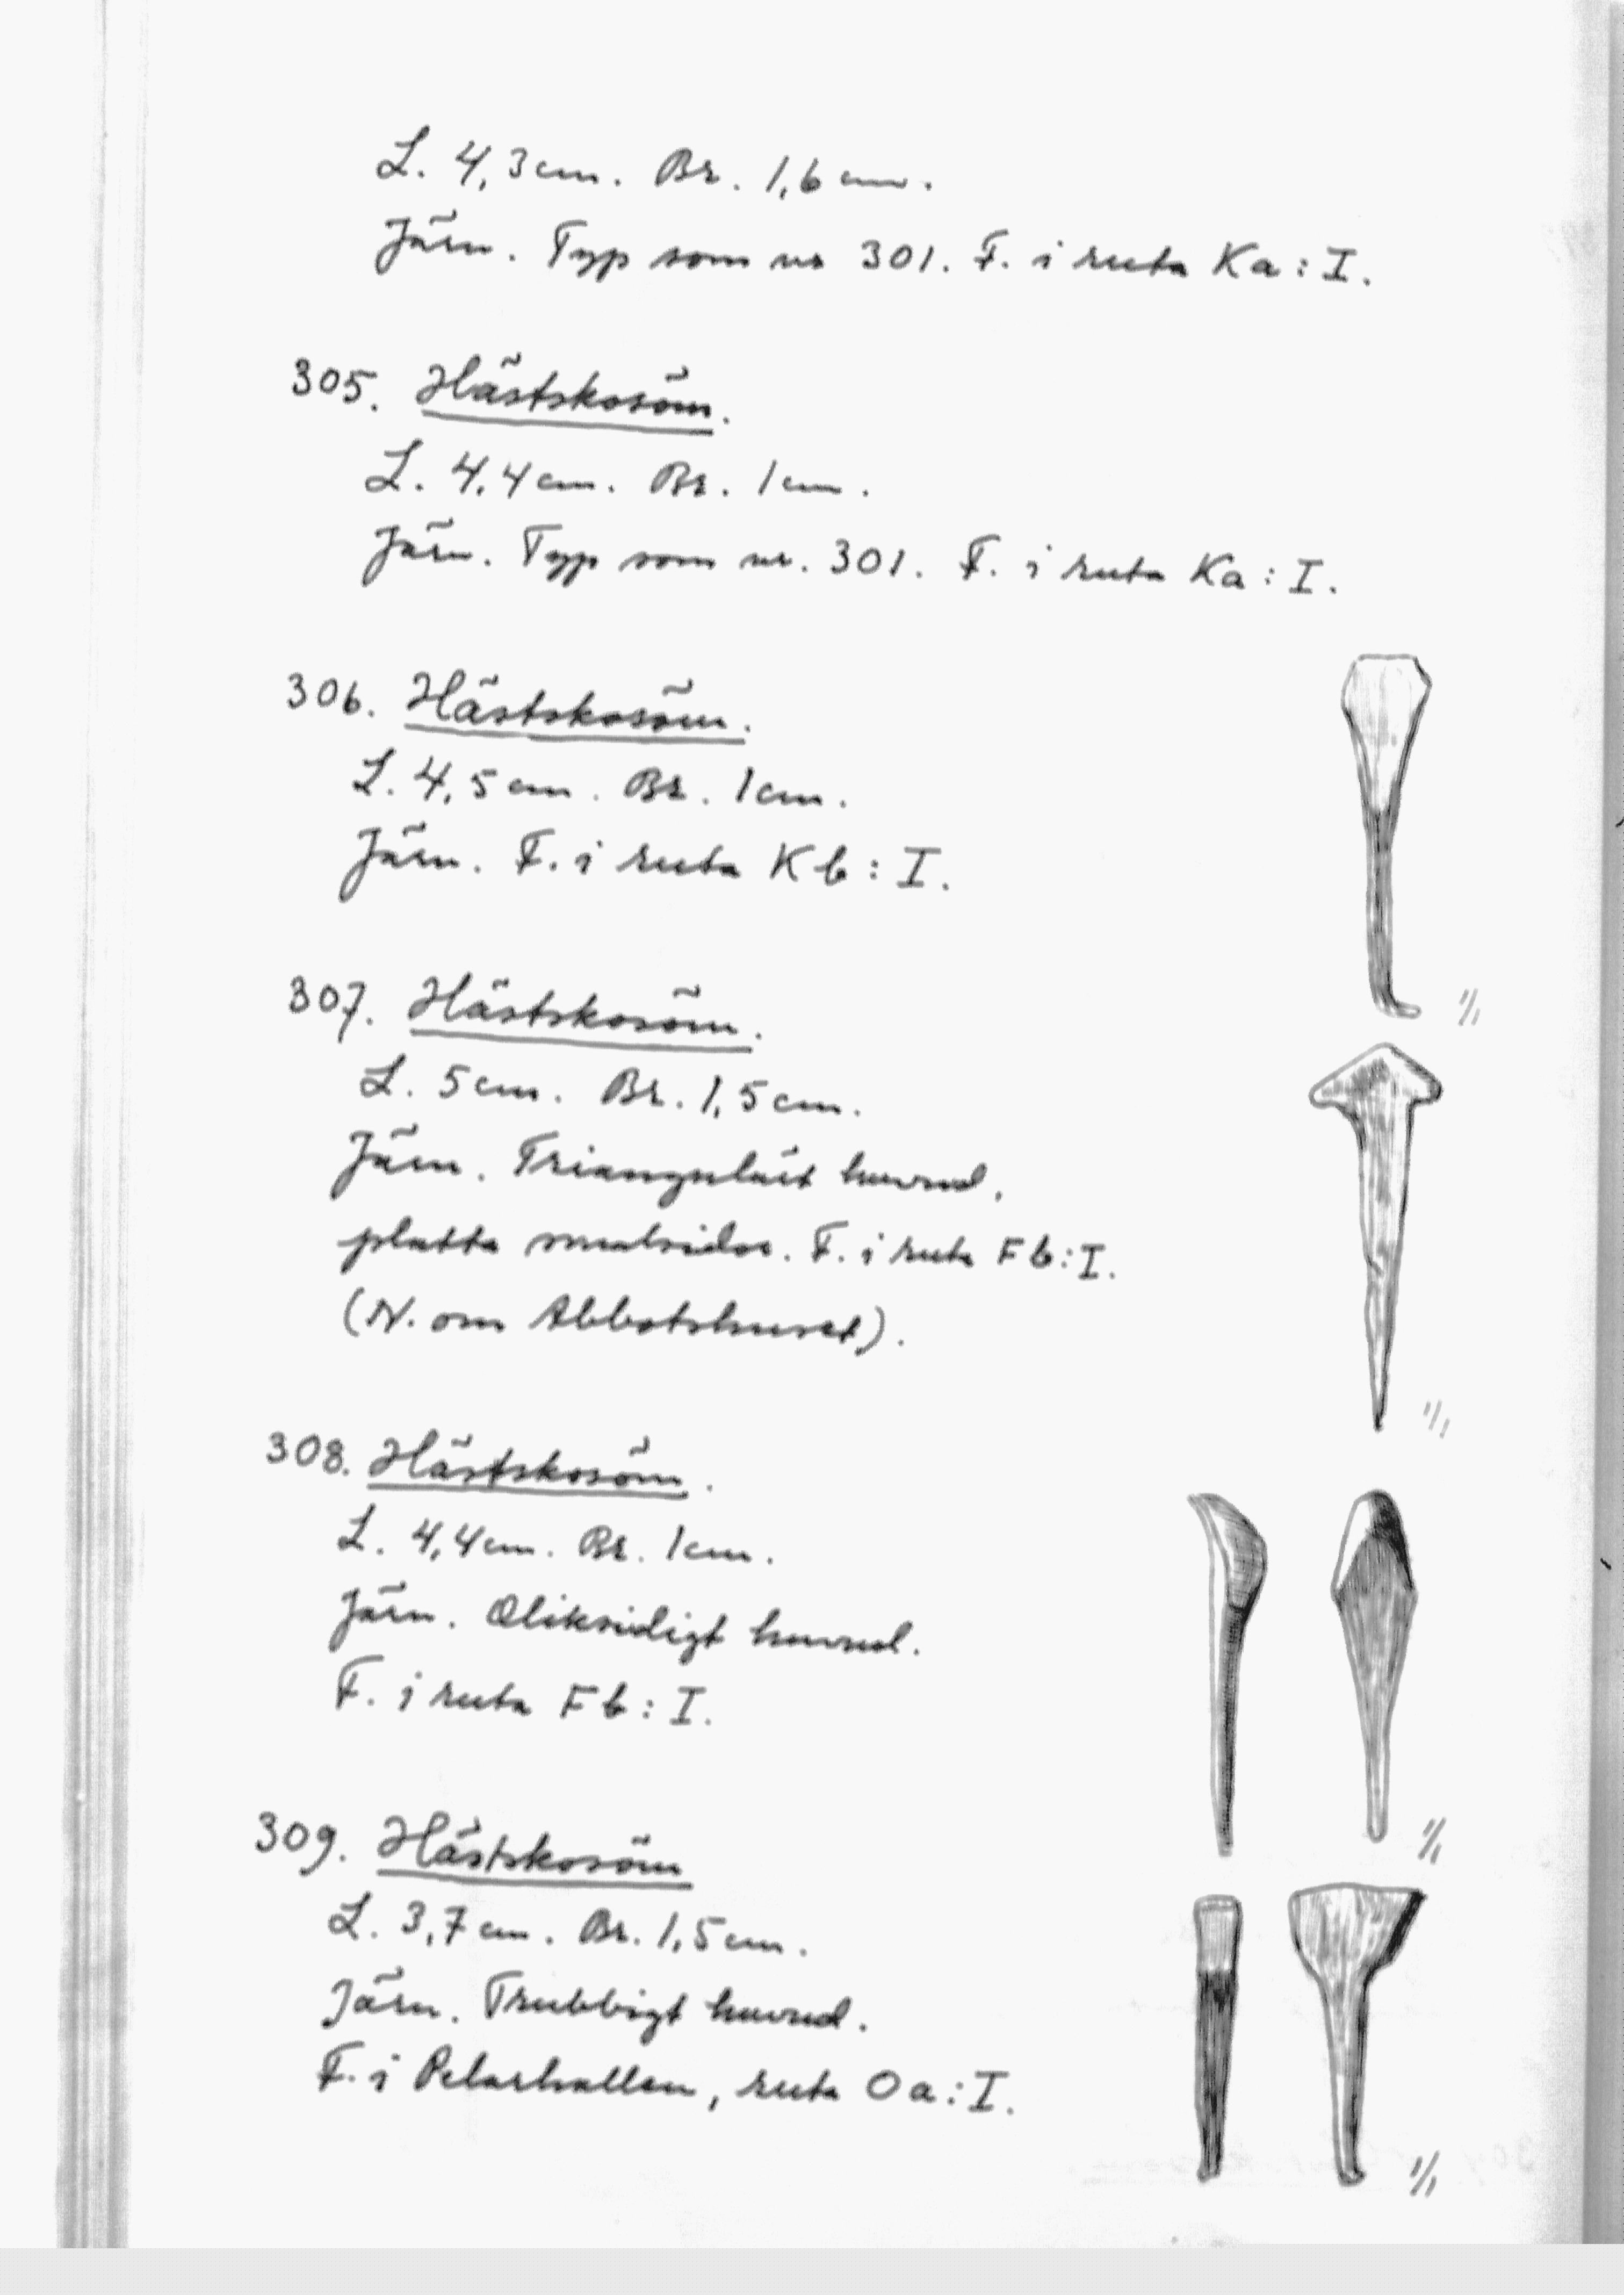 L. 4,3 cm. Br. 1,6 cm.
Järn. Typ som nr 301. F. i ruta Ka : I.
305. Hästskosöm.
L. 4,4 cm. Br. 1 cm.
Järn. Typ som nr. 301. F. i ruta Ka : I.
306. Hästskosöm.
L. 4,5 cm. Br. 1 cm.
Järn. F. i ruta Kb : I.
1/1
307. Hästskosöm.
L. 5 cm. Br. 1,5 cm.
Järn. Triangulärt huvud,
platta smalsidor. F. i ruta Fb : I.
(N. om Abbotshuset).
1/1
308. Hästskosöm.
L. 4,4 cm. Br. 1 cm.
Järn. Oliksidigt huvud.
F. i ruta Fb : I.
1/1
309. Hästskosöm
L. 3,7 cm. Br. 1,5 cm.
Järn. Trubbigt huvud.
F. i Pelarhallen, ruta Oa : I.
1/1